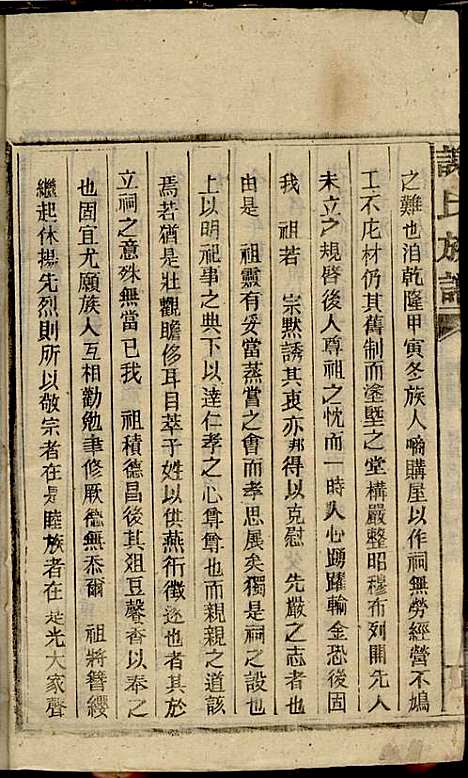 之難也洎乾隆甲寅冬族人喻購屋以作祠無勞經營不鳩
工不庀材仍其舊制而塗墍之堂構嚴整昭穆布列開先人
未立之規啓後人尊祖之忱而一時人心踴躍輸金恐後固
我 祖若 宗默誘其衷亦邦得以克慰 先嚴之志者也
由是 祖靈有妥當蒸嘗之會而孝思展矣獨是祠之設也
上以明祀事之典下以達仁孝之心尊尊也而親親之道該
焉若猶是壯觀瞻侈耳目萃子姓以供燕衎徵逐也者其於
立祠之意殊無當已我 祖積德昌後其俎豆馨香以奉之
也固宜尤願族人互相勸勉聿修厥德無忝爾 祖將簪纓
繼起休揚先烈則所以敬宗者在是睦族者在是光大家聲
氏族譜